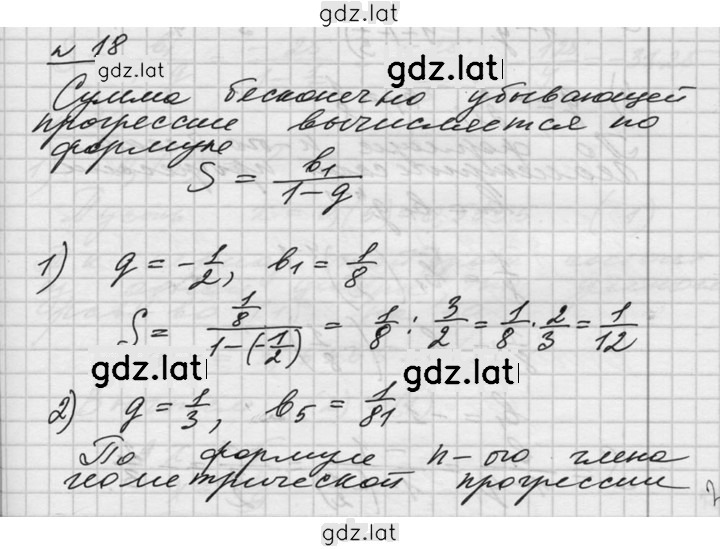 gdz.lat
№ 18
gdz.lat
gdz.lat
Сумма бесконечно убывающей
прогрессии вычисляется по
формуле
S = b₁/(1-q)
1) q = -1/2, b₁ = 1/8
S = (1/8)/(1-(-1/2)) = 1/8 : 3/2 = 1/8 · 2/3 = 1/12
gdz.lat gdz.lat
2) q = 1/3, b₅ = 1/81
По формуле n-ого члена
геометрической прогрессии
gdz.lat